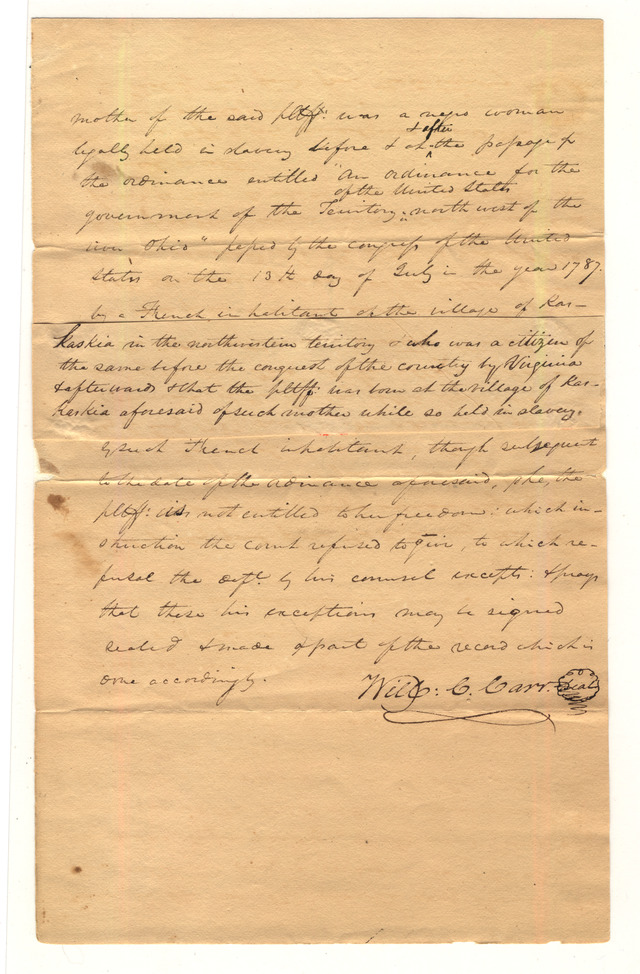 mother of the said pltff: was a negro woman
& after
legally held in slavery before & at the passage of
the ordinance entitled "An ordinance for the
of the United States
government of the Territory "north west of the
river Ohio" passed by the congress of the United
States on the 13th day of July in the year 1787.
by a French inhabitant of the village of Kas-
kaskia in the northwestern territory & who was a citizen of
the same before the conquest of the country by Virginia
& afterward & that the pltff: was born at the village of Kas-
kaskia aforesaid of such mother while so held in slavery.
by such French inhabitant, though subsequent
to the date of the ordinance aforesaid, she, the
pltff: is not entitled to her freedom: which in-
struction the court refused to give, to which re-
fusal the deft. by his counsel excepts: & prays
that these his exceptions may be signed
sealed & made a part of the record which is
done accordingly.
Will: C. Carr. Seal